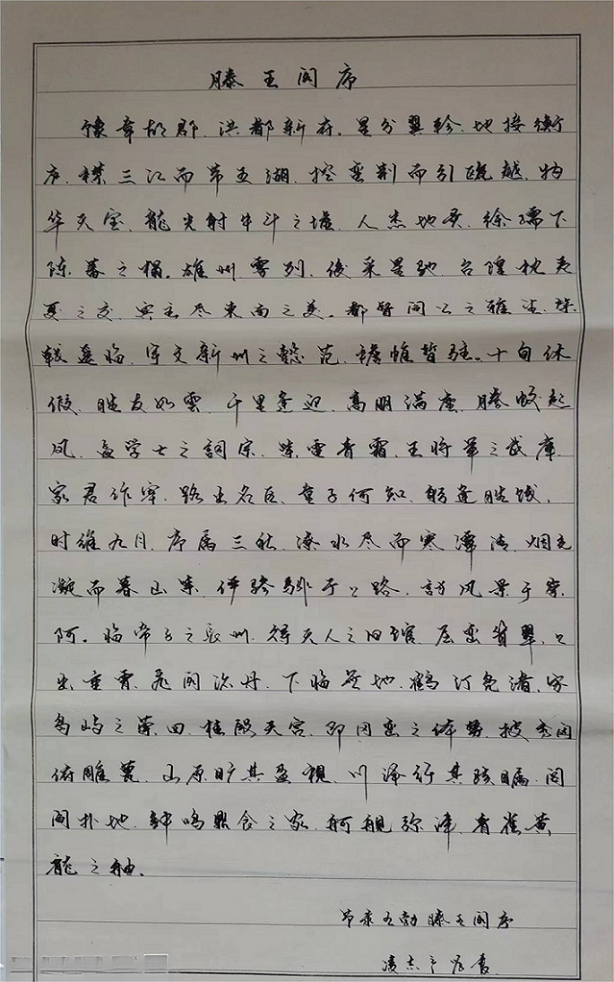 滕王阁序
豫章故郡、洪都新府。星分翼轸、地接衡
庐、襟三江而带五湖、控蛮荆而引瓯越、物
华天宝、龙光射牛斗之墟、人杰地灵、徐孺下
陈蕃之榻。雄州雾列、俊采星驰、台隍枕夷
夏之交、宾主尽东南之美。都督阎公之雅望、棨
戟遥临、宇文新州之懿范、襜帷暂驻。十旬休
假、胜友如雲、千里逢迎、高朋满座、腾蛟起
凤、孟学士之詞宗、紫電青霜、王将军之武庫、
家君作宰、路出名区、童子何知、躬逢胜饯、
时维九月、序属三秋、潦水尽而寒潭清、烟光
凝而暮山紫、俨骖騑于上路、訪风景于崇
阿。临帝子之長州、得天人之旧馆、层峦耸翠、上
出重霄、飛阁流丹、下临無地、鹤汀凫渚、穷
岛屿之萦回、桂殿天宫、即冈峦之体势、披绣闼
俯雕甍、山原旷其盈視、川泽纡其骇瞩、闾
阎扑地、鈡鸣鼎食之家、舸舰弥津、青雀黄
龍之舳、
节录王勃滕王阁序
凌志